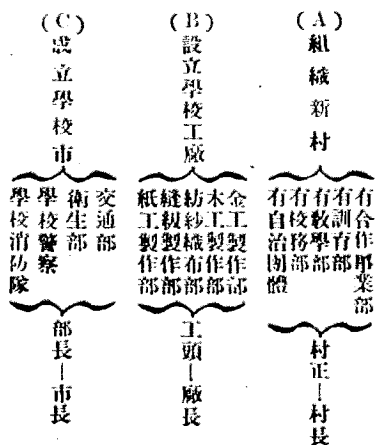 (A)
組織新村
有合作畢業部
有訓育部
有敎學部
有校務部
有自治團體
村正—村長
(B)
設立學校工廠
金工製作部
木工製作部
紡紗織布部
縫級製作部
紙工製作部
工頭—廠長
(C)
成立學校市
交通部
衛生部
學校警察
學校消防隊
部長—市長